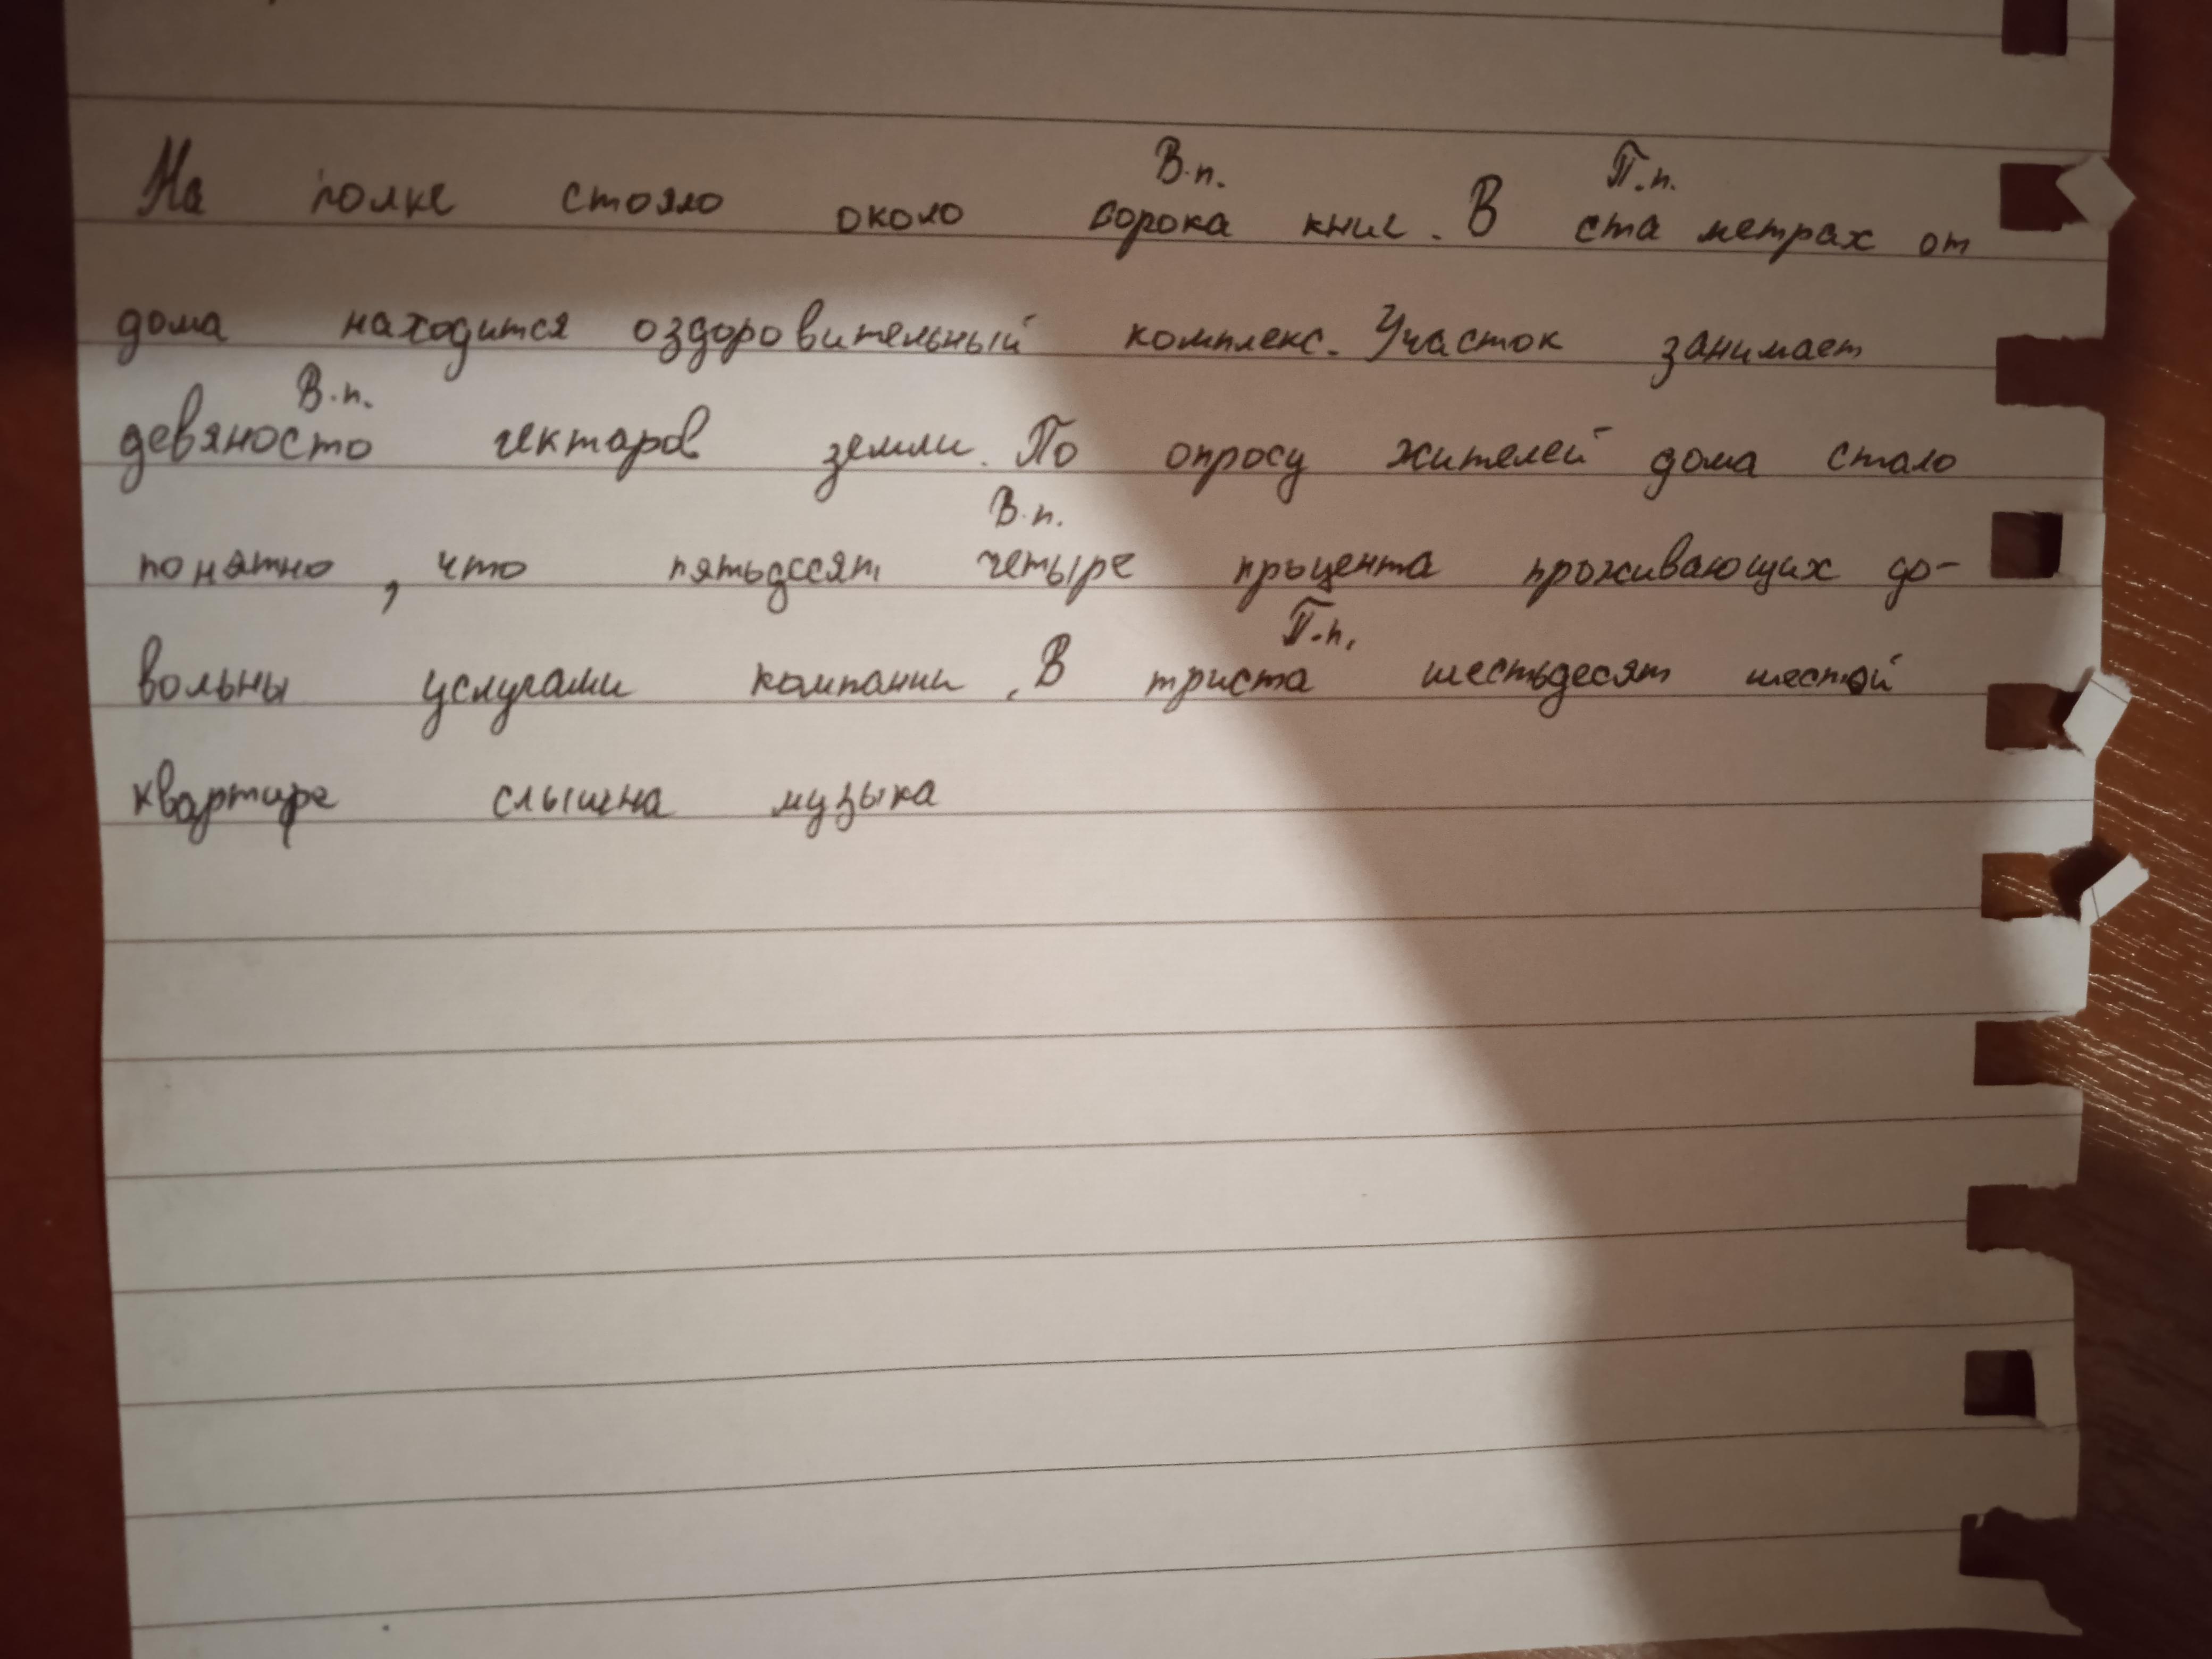 В.п. П.п.
На полке стояло около сорока книг. В ста метрах от
дома находится оздоровительный комплекс. Участок занимает
В.п.
девяносто гектаров земли. По опросу жителей дома стало
В.п.
понятно, что пятьдесят четыре процента проживающих до-
П.п.
вольны услугами компании. В триста шестьдесят шестой
квартире слышна музыка